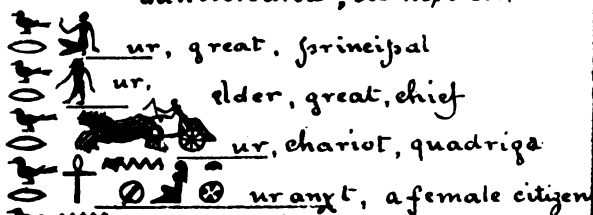 𓅨𓂋 ur, great, principal
𓅨𓂋 ur, elder, great, chief
𓅨𓂋 ur, chariot, quadriga
𓅨𓂋𓋹𓈖𓐍 ur anχt, a female citizen